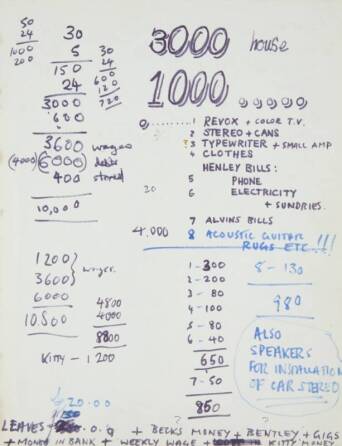 50
24
1000
200
30
5
150
24
3000
600
3600 wages
(4000) 6000 debts
400 stereo
10,000
30
24
600
120
720
1200
3600 } wages.
6000
10.800
4800
4000
8800
KITTY - 1200
3000 house
1000
1 REVOX + COLOR T.V.
2 STEREO + CANS
3 TYPEWRITER + SMALL AMP
4 CLOTHES
HENLEY BILLS:
5 PHONE
20
6 ELECTRICITY
+ SUNDRIES.
7 ALVINS BILLS
4.000 8 ACOUSTIC GUITAR
RUGS ETC !!!
1 - 300
2 - 200
3 - 80
4 - 100
5 - 80
6 - 40
650
7 - 50
850
8 - 130
980
ALSO
SPEAKERS
FOR INSTALLATION
OF CAR STEREO
20.00
LEAVES + BECKS MONEY + BENTLEY + GIGS
+ MONEY IN BANK + WEEKLY WAGE + KITTY MONEY